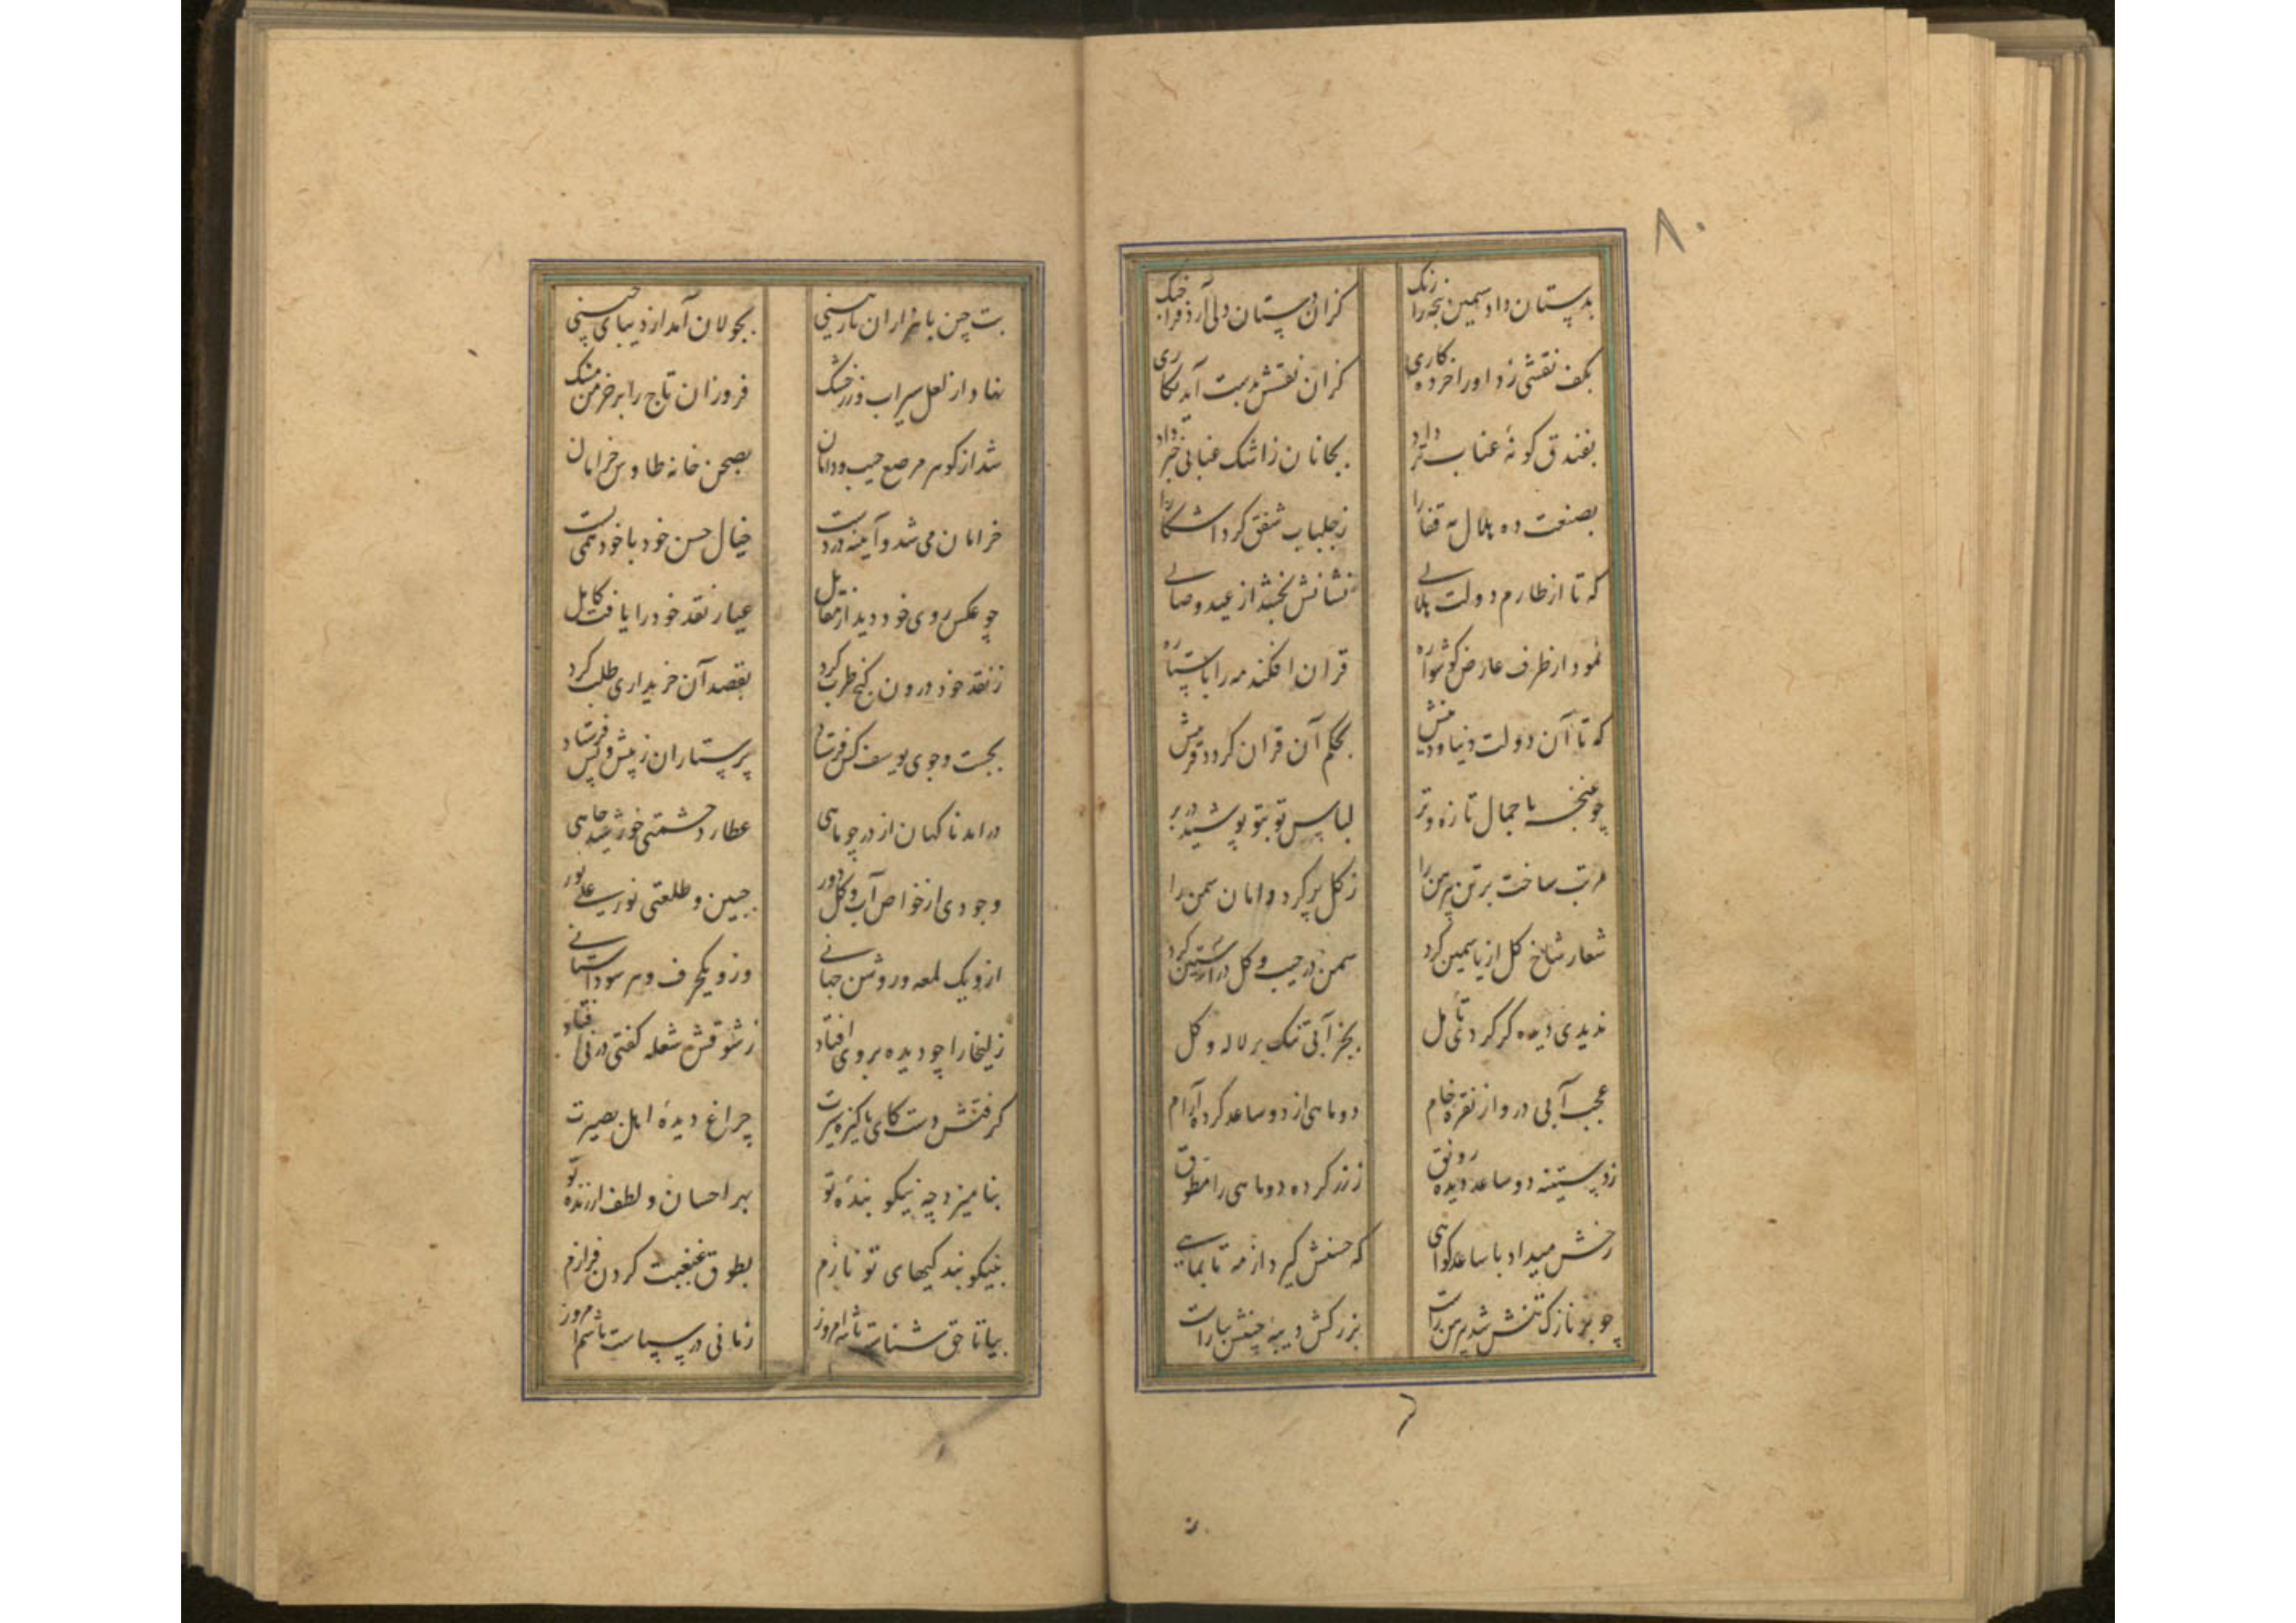 ۸۰
بدستان داد سیمین پنجه را رنگ    کزان دستان دلی آرد فرا چنگ
بکف نقشی زد او را خرده کاری    کزان نقشش بدست آید نگاری
بفندق کونهٔ عناب تر داد    بجانان ز اشک عنابی خبر داد
بصنعت ده هلال قفا را    ز جلباب شفق کرد آشکارا
که تا از طارم دولت هلالی    نشانش بخشد از عید وصالی
نمود از طرف عارض کوشواره    قران افکند مه را با ستاره
که تا آن دولت دنیا و دینش    بحکم آن قران کردد قرینش
چو غنچه با جمال تازه و تر    لباس تو بتو پوشید در بر
مرتب ساخت بر تن پیرهن را    ز کل پر کرد دامان سمن را
شعار شاخ کل از یاسمین کرد    سمن در جیب و کل در آستین کرد
ندیدی دیده کر کردی تأمل    بجز آبی تنک بر لاله و کل
عجب آبی در و از نقرهٔ خام    دو ماهی از دو ساعد کرده آرام
زدستینه دو ساعد دیده رونق    ز زر کرده دو ماهی را مطوق
رخش میداد با ساعد کواهی    که حسنش کیرد از مه تا بماهی
چو بر نازک تنش شد پیرهن راست    بزرکش دیبهٔ چینش بیاراست
بت چین با هزاران نازنینی    بجولان آمد از دیبای چینی
نهاد از لعل سیراب و زر خشک    فروزان تاج را بر خرمن مشک
شد از کوهر مرصع جیب و دامان    بصحن خانه طاوس خرامان
خرامان می شد و آیینه در دست    خیال حسن خود با خود همی بست
چو عکس روی خود دید از مقابل    عیار نقد خود را یافت کامل
ز نقد خود درون کنج طرب کرد    بقصد آن خریداری طلب کرد
بجست و جوی یوسف کس فرستاد    پرستاران ز پیش و پس فرستاد
درامد ناکهان از در چو ماهی    عطارد حشمتی خورشید جاهی
وجودی از خواص آب و کل دور    جبین و طلعتی نور علی نور
ازو یک لمعه و روشن جهانی    وزو یکحرف و هر سو داستانی
زلیخا را چو دیده بر وی افتاد    ز شوقش شعله کفتی در نی افتاد
کرفتش دست کای پاکیزه سیرت    چراغ دیدهٔ اهل بصیرت
بنامیزد چه نیکو بندهٔ تو    بهر احسان و لطف ارزندهٔ تو
بنیکو بندکیهای تو نازم    بطوق غبغبت کردن فرازم
بیا تا حق شناست باشم امروز    زمانی در سپاست باشم امروز